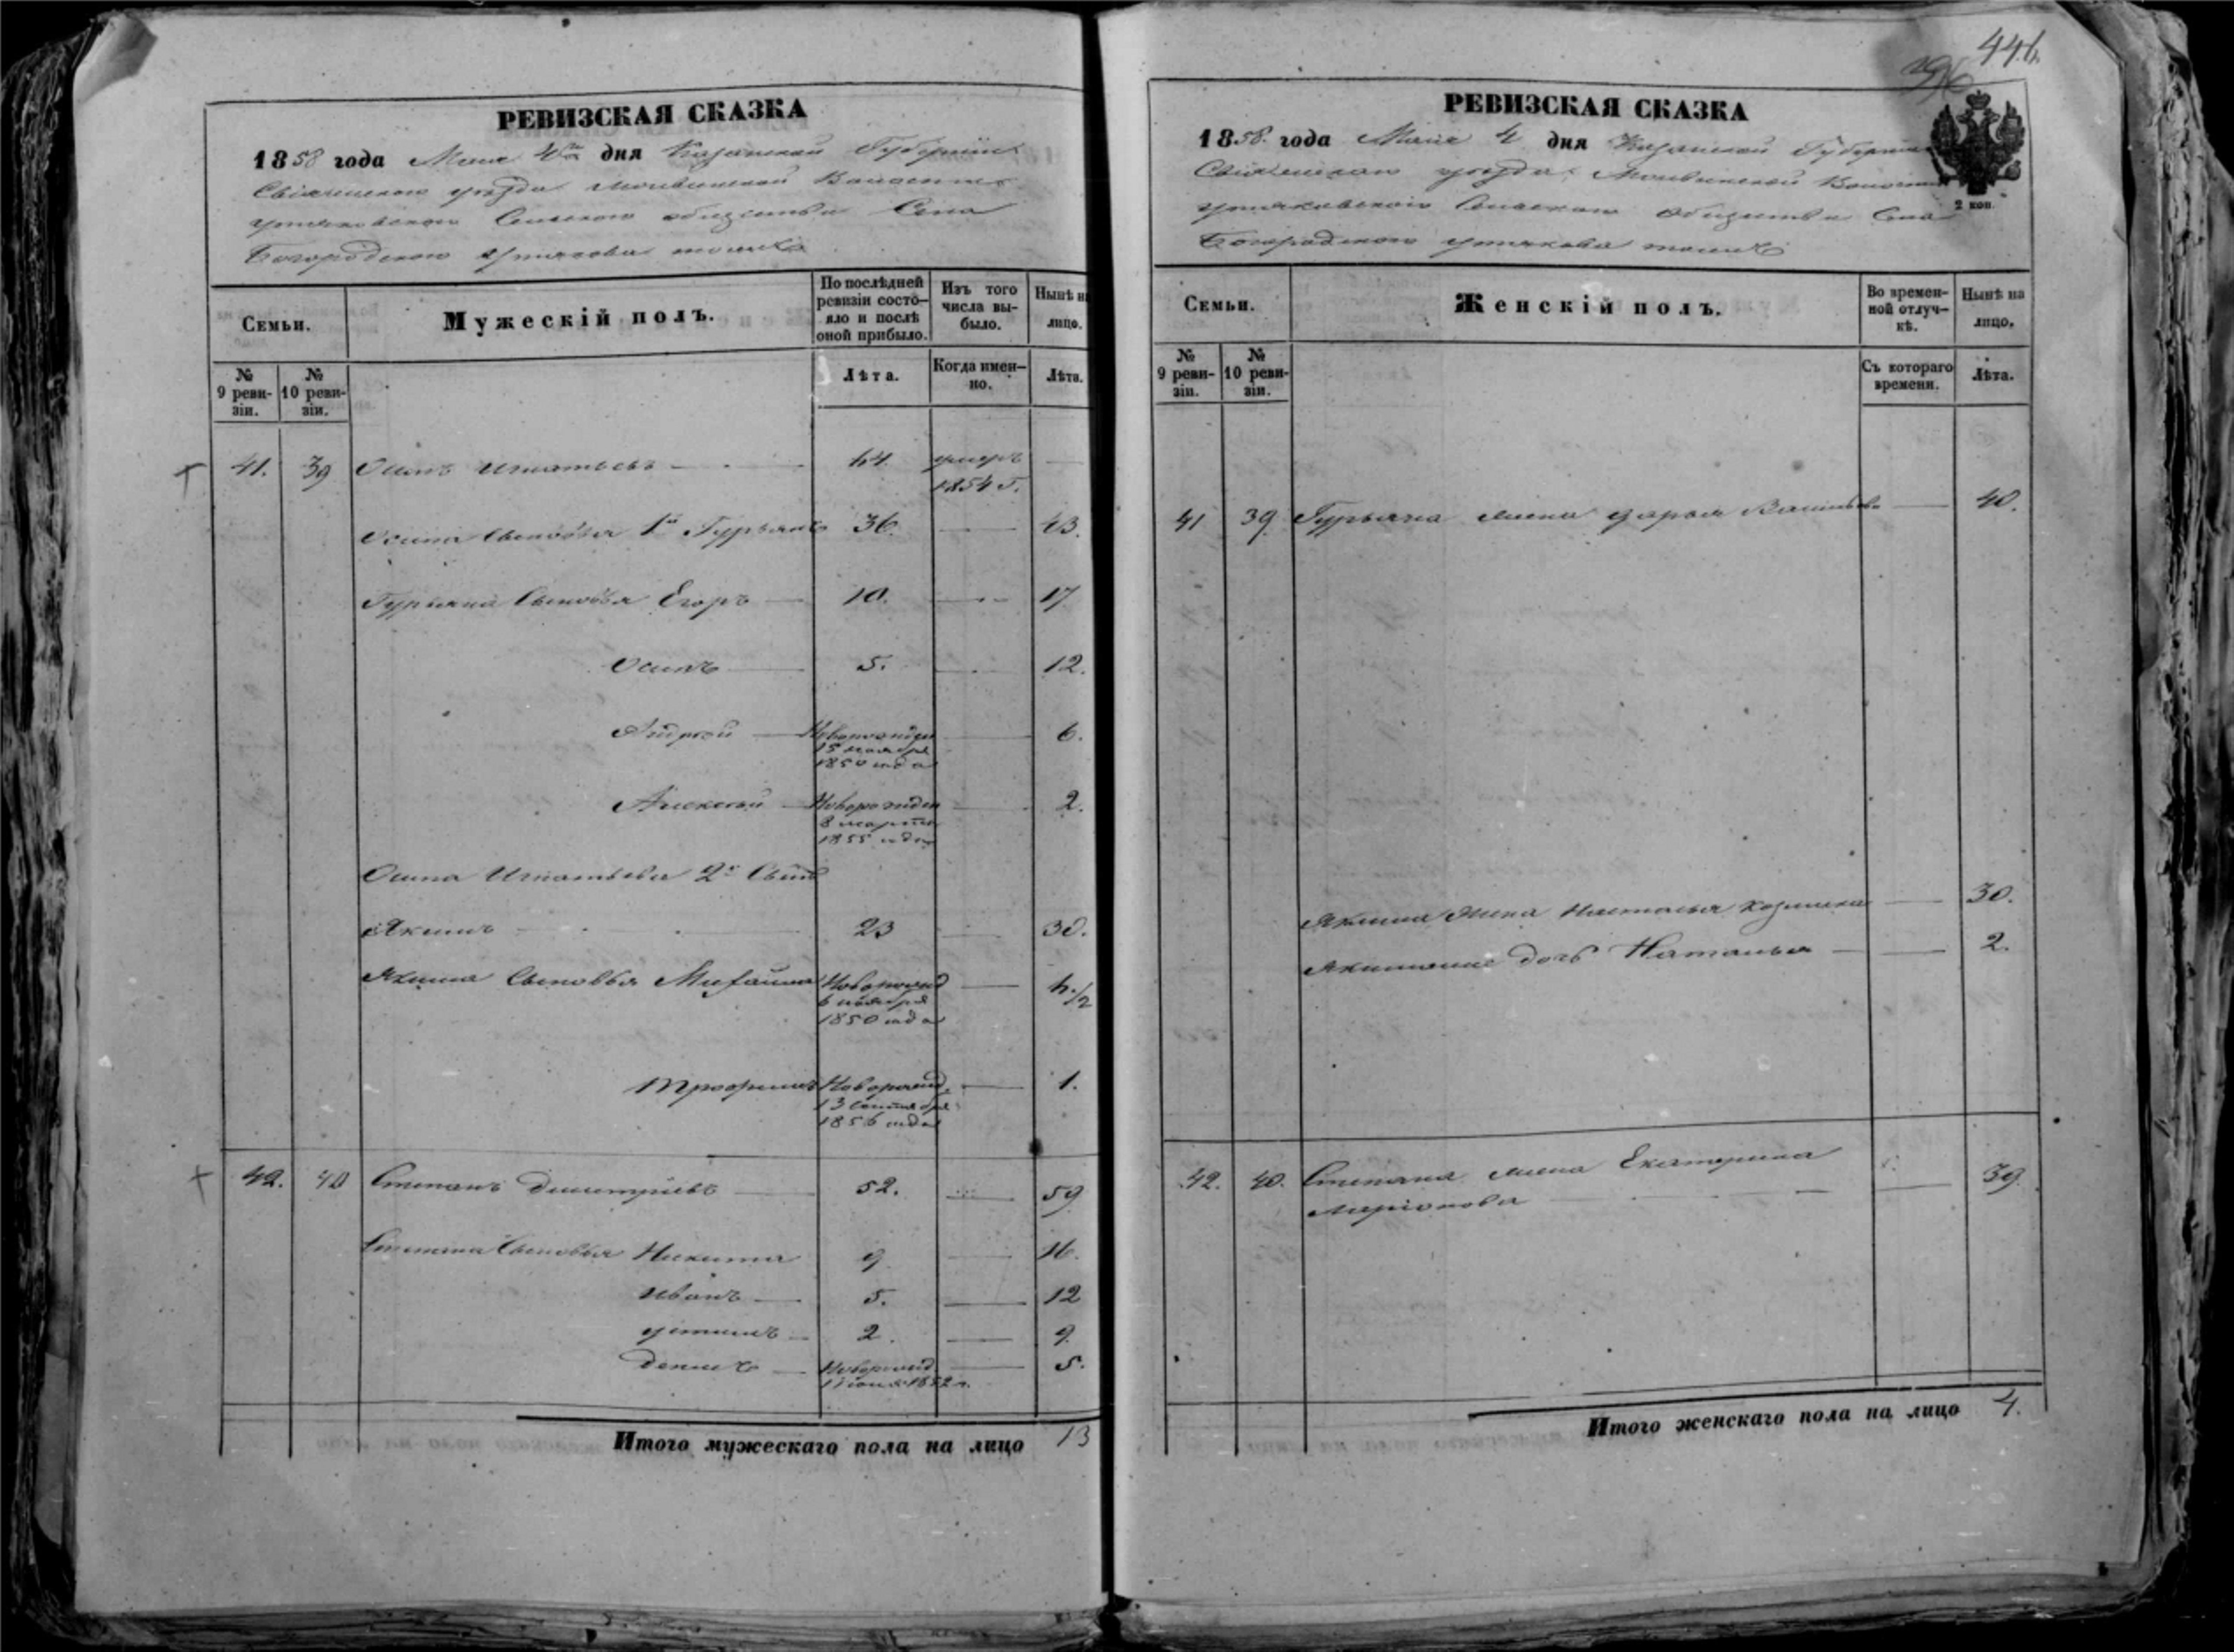 446.
РЕВИЗСКАЯ СКАЗКА
1858 года Маія 4го дня Казанской Губерніи
Свіяжскаго уѣзда Волости
Сельскаго общества Села
Богородскаго тожъ
Семьи.
Мужескій полъ.
По послѣдней ревизіи состо-
яло и послѣ
оной прибыло.
Изъ того
числа вы-
было.
Нынѣ на
лицо.
№
9 реви-
зіи.
№
10 реви-
зіи.
Лѣта.
Когда имен-
но.
Лѣта.
41. 39 Осипъ Игнатьевъ 64 умеръ
1854 г.
Осипа Сыновья 1й Гурьянъ 36. 43.
Гурьяна Сыновья Егоръ 10. 17
Осипъ 5. 12.
Андрей Новорожден 6.
15 ноября
1850 года
Алексѣй Новорожден 2.
8 марта
1855 года
Осипа Игнатьева 2й Сынъ
Якимъ 23 30.
Якима Сыновья Михайла Новорожд 6./2
6 ноября
1850 года
Трофимъ Новорожд. 1.
13 Сентября
1856 года
42. 40 Степанъ Дмитріевъ 52. 59
Степана Сыновья Никита 9 16.
Иванъ 5. 12
Устинъ 2. 9.
Денисъ Новорожд. 5.
1852 г.
Итого мужескаго пола на лицо 13
РЕВИЗСКАЯ СКАЗКА
1858. года Маія 4 дня Казанской Губерніи
Свіяжскаго уѣзда Волости
Сельскаго Общества Села
Богородскаго тожъ
2 коп.
Семьи.
Женскій полъ.
Во времен-
ной отлуч-
кѣ.
Нынѣ на
лицо.
№
9 реви-
зіи.
№
10 реви-
зіи.
Съ котораго
времени.
Лѣта.
41 39. Гурьяна жена Дарья Васильева 40.
Якима жена Настасья Козмина 30.
Якимова дочь Наталья 2.
42. 40. Степана жена Екатерина 39.
Ларіонова
Итого женскаго пола на лицо 4.